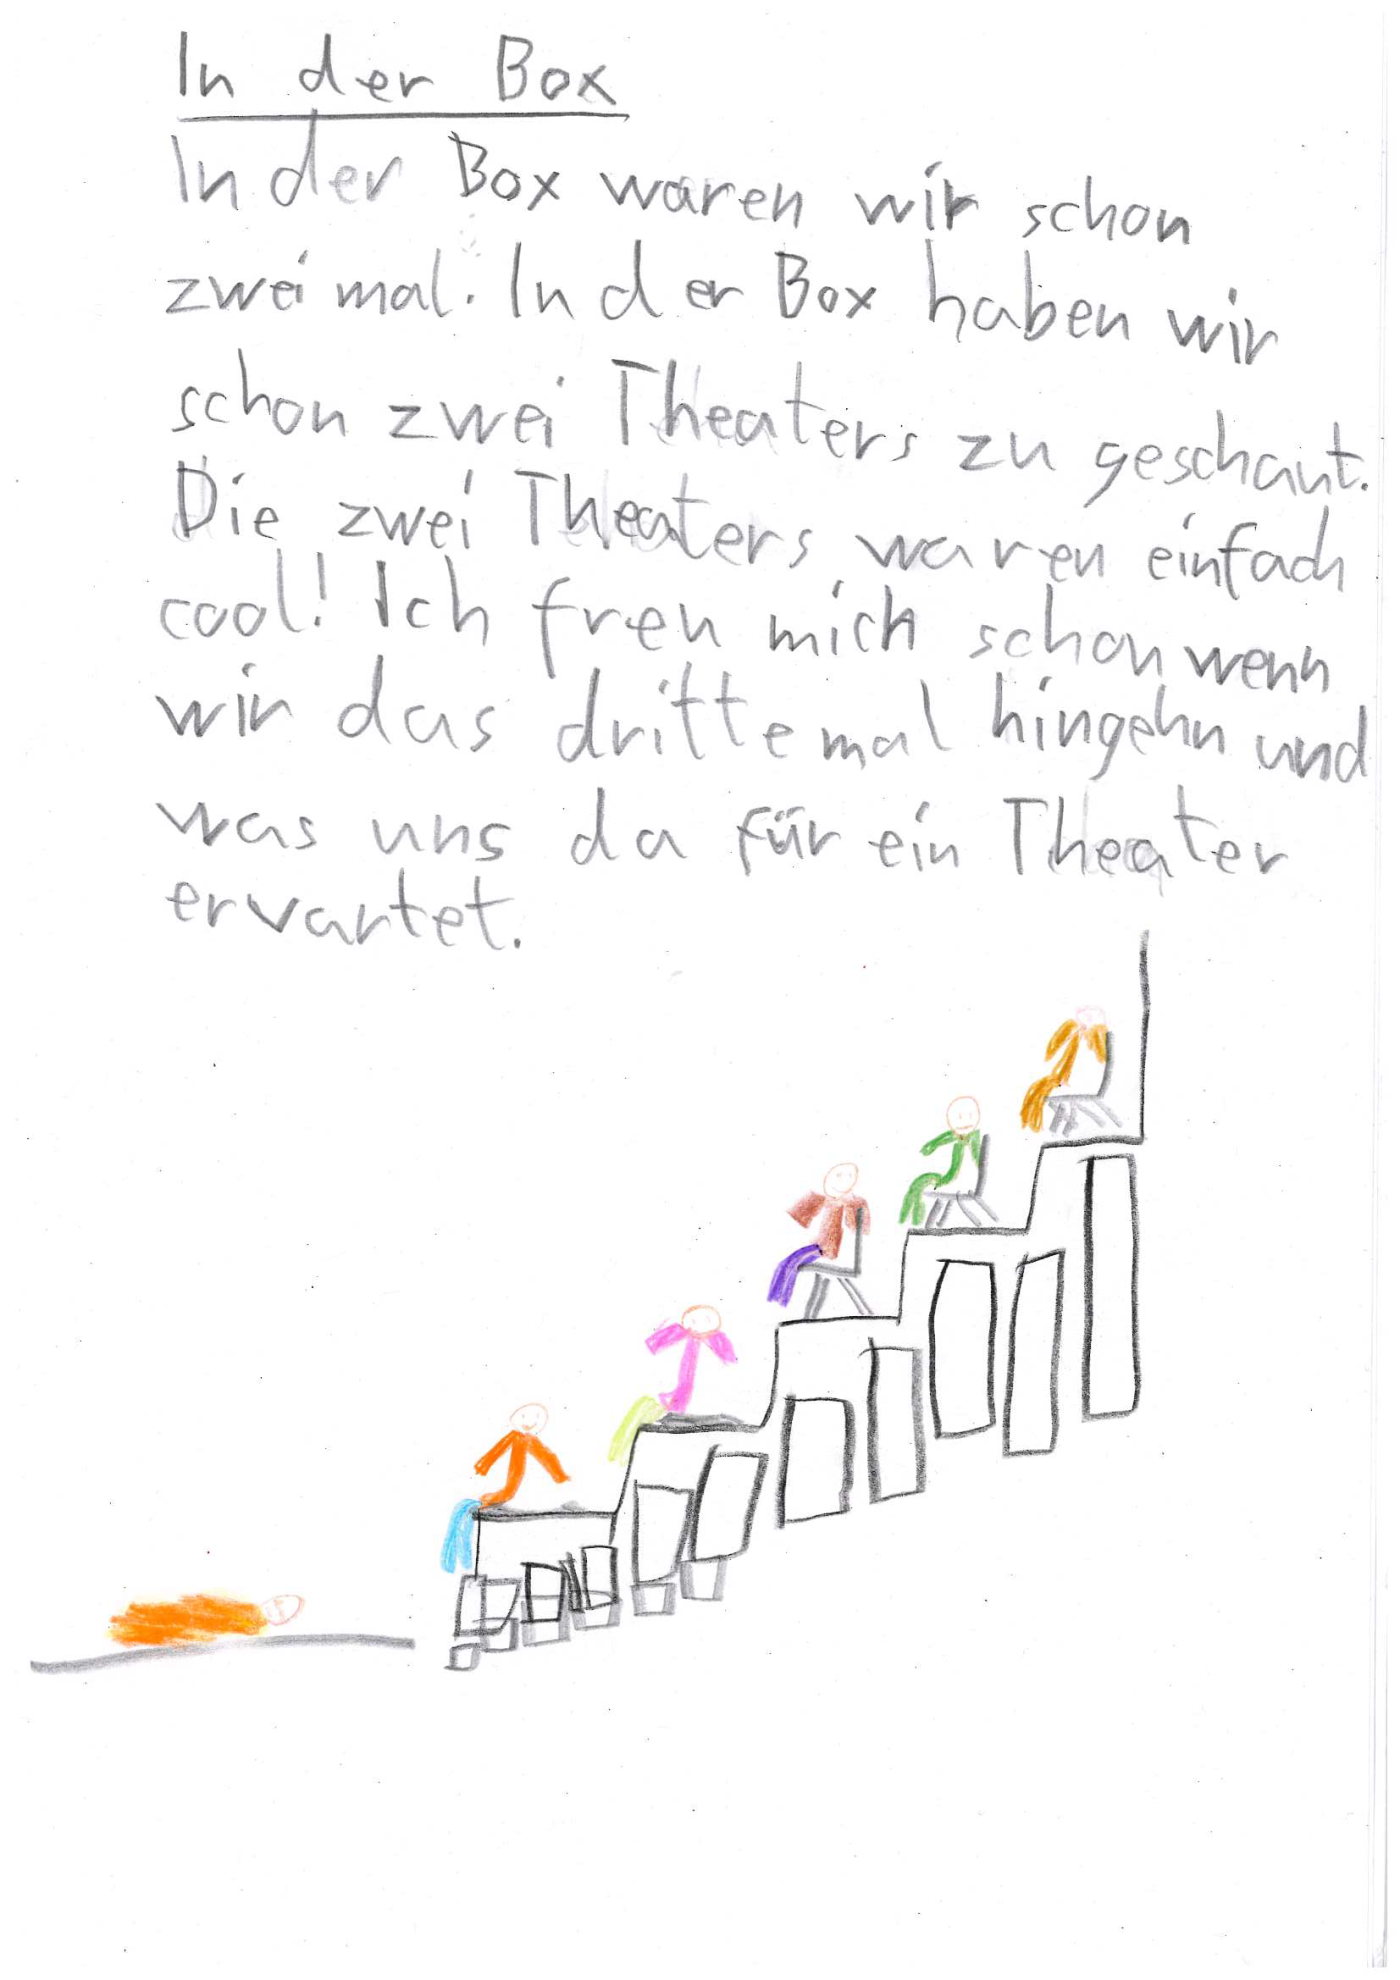 In der Box
In der Box waren wir schon
zwei mal. In der Box haben wir
schon zwei Theaters zu geschaut.
Die zwei Theaters waren einfach
cool! Ich freu mich schon wenn
wir das dritte mal hingehn und
was uns da für ein Theater
erwartet.